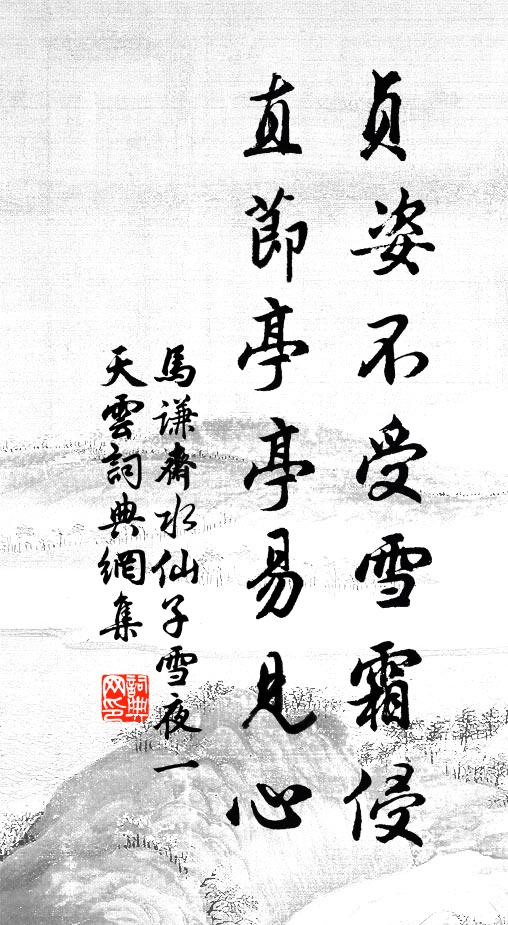 貞姿不受雪霜侵
直節亭亭易見心
馬謙齋水仙子雪夜一
天雲詞典網集
詞典
网印